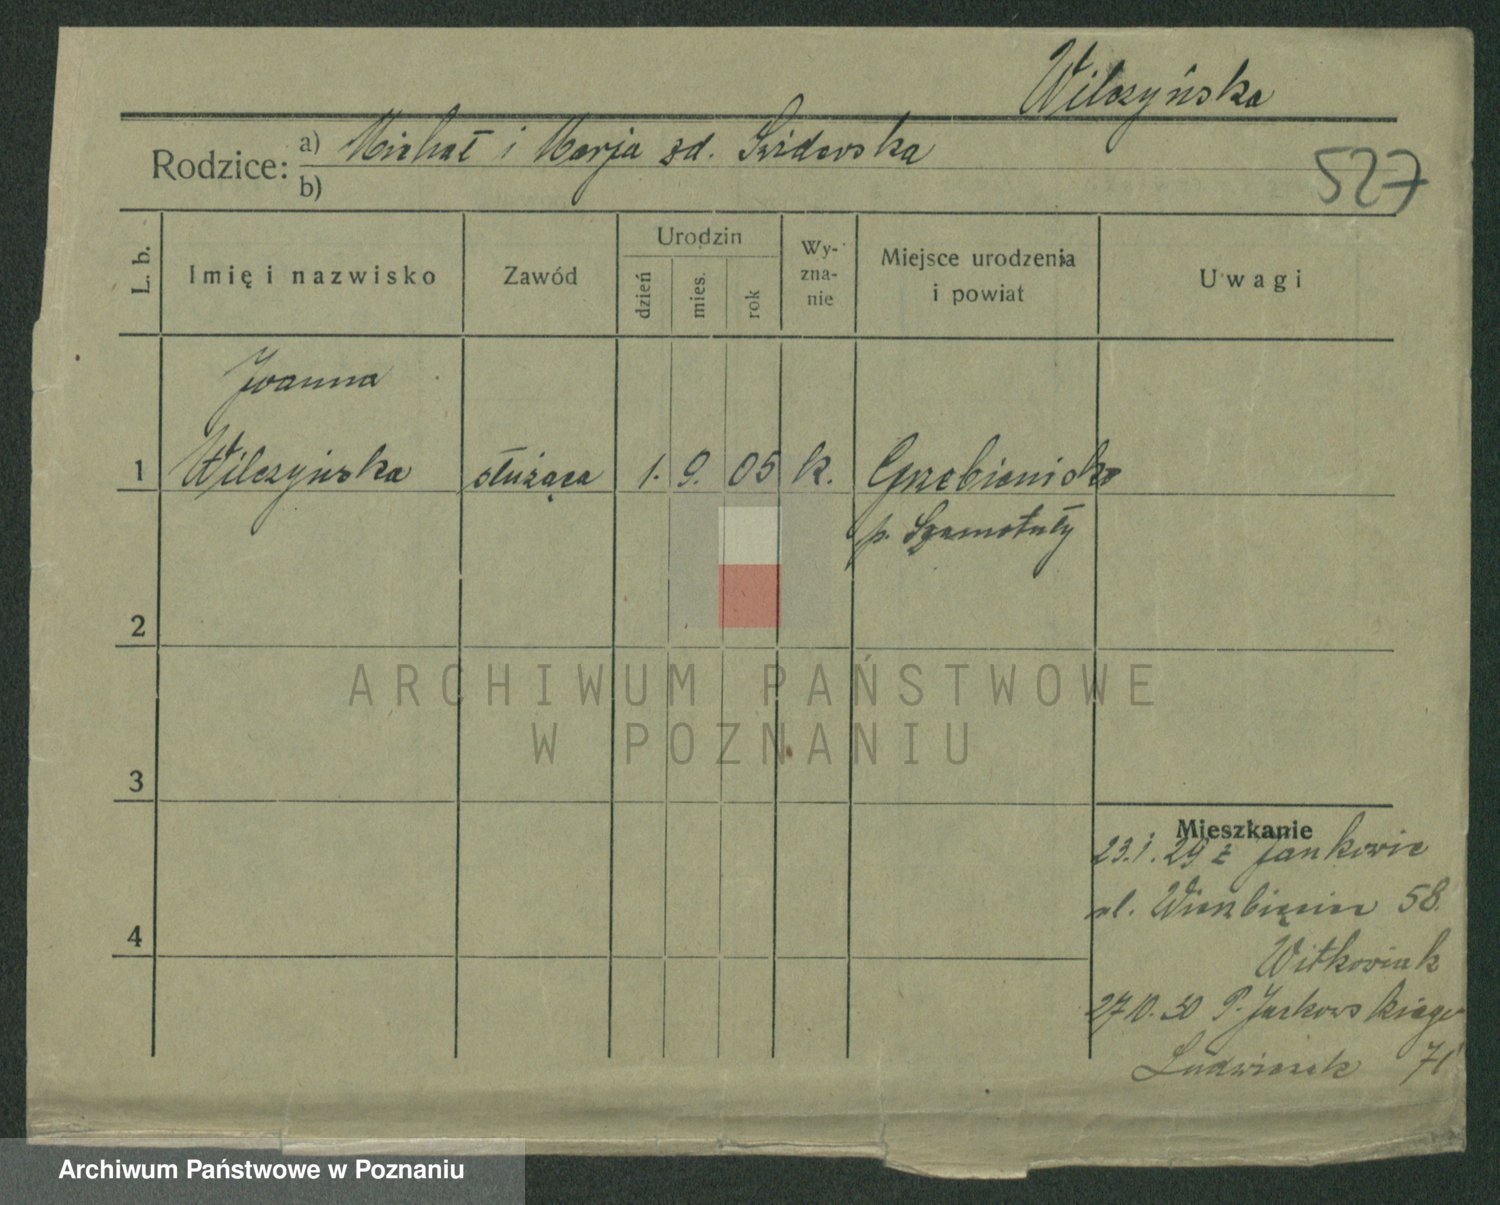 Wilczyńska
Rodzice:
a) Michał i Marja zd.
b)
527
L. b.
Imię i nazwisko
Zawód
Urodzin
dzień
mies.
rok
Wy-
zna-
nie
Miejsce urodzenia
i powiat
Uwagi
Joanna
1 Wilczyńska służąca 1. 9. 05 k. Grzebienisko
p. Szamotuły
2
3
4
Mieszkanie
23.1.29 z Jankowic
ul. Wierzbięcice 58
Witkowiak
27.10.30 P.
Ludwiczak 71
ARCHIWUM PAŃSTWOWE
W POZNANIU
Archiwum Państwowe w Poznaniu